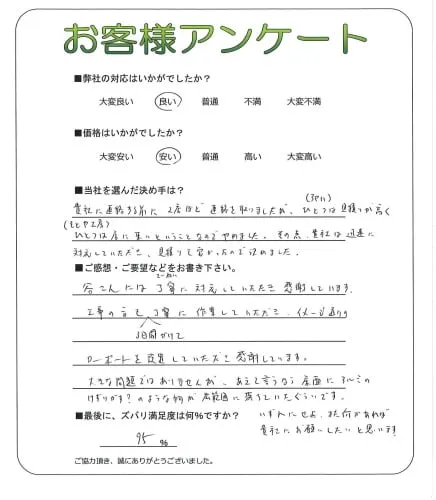 お客様アンケート
■弊社の対応はいかがでしたか?
大変良い 良い 普通 不満 大変不満
■価格はいかがでしたか?
大変安い 安い 普通 高い 大変高い
■当社を選んだ決め手は?
貴社に連絡する前に 2店ほど 連絡を取りましたが、ひとつは 見積りが高く
ひとつは 店に来いということなのでやめました。その点、貴社は 迅速に
対応していただき、見積りも安かったので決めました。
■ご感想・ご要望などをお書き下さい。
さんには 丁寧に 対応していただき 感謝しています。
工事の方も 丁寧に 作業していただき、イメージ通りの
3日間かけて
カーポートを設置していただき 感謝しています。
大きな問題ではありませんが、あえて言うなら 床面に アルミの
けずりカス?のような物が 広範囲に 落ちていたぐらいです。
■最後に、ズバリ満足度は何%ですか?
いずれにせよ、また何かあれば
貴社にお願いしたいと思います!
95 %
ご協力頂き、誠にありがとうございました。